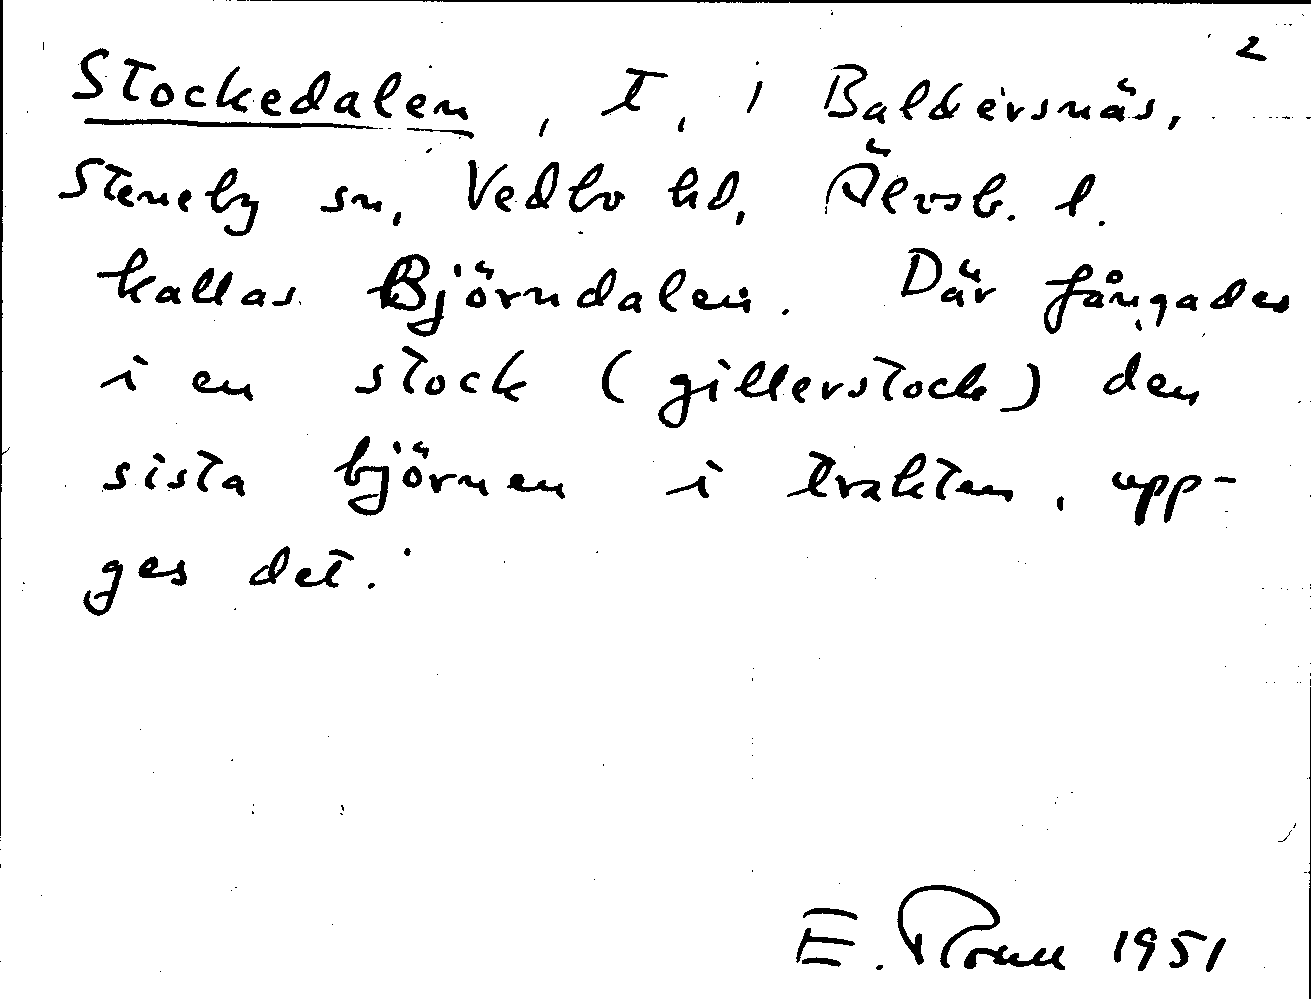 2
Stockedalen, T, i Baldersnäs,
Steneby sn, Vedbo hd, Älvsb. l.
kallas Björndalen. Där fångades
i en stock (gillerstock) den
sista björnen i trakten, upp-
ges det.
E. 1951